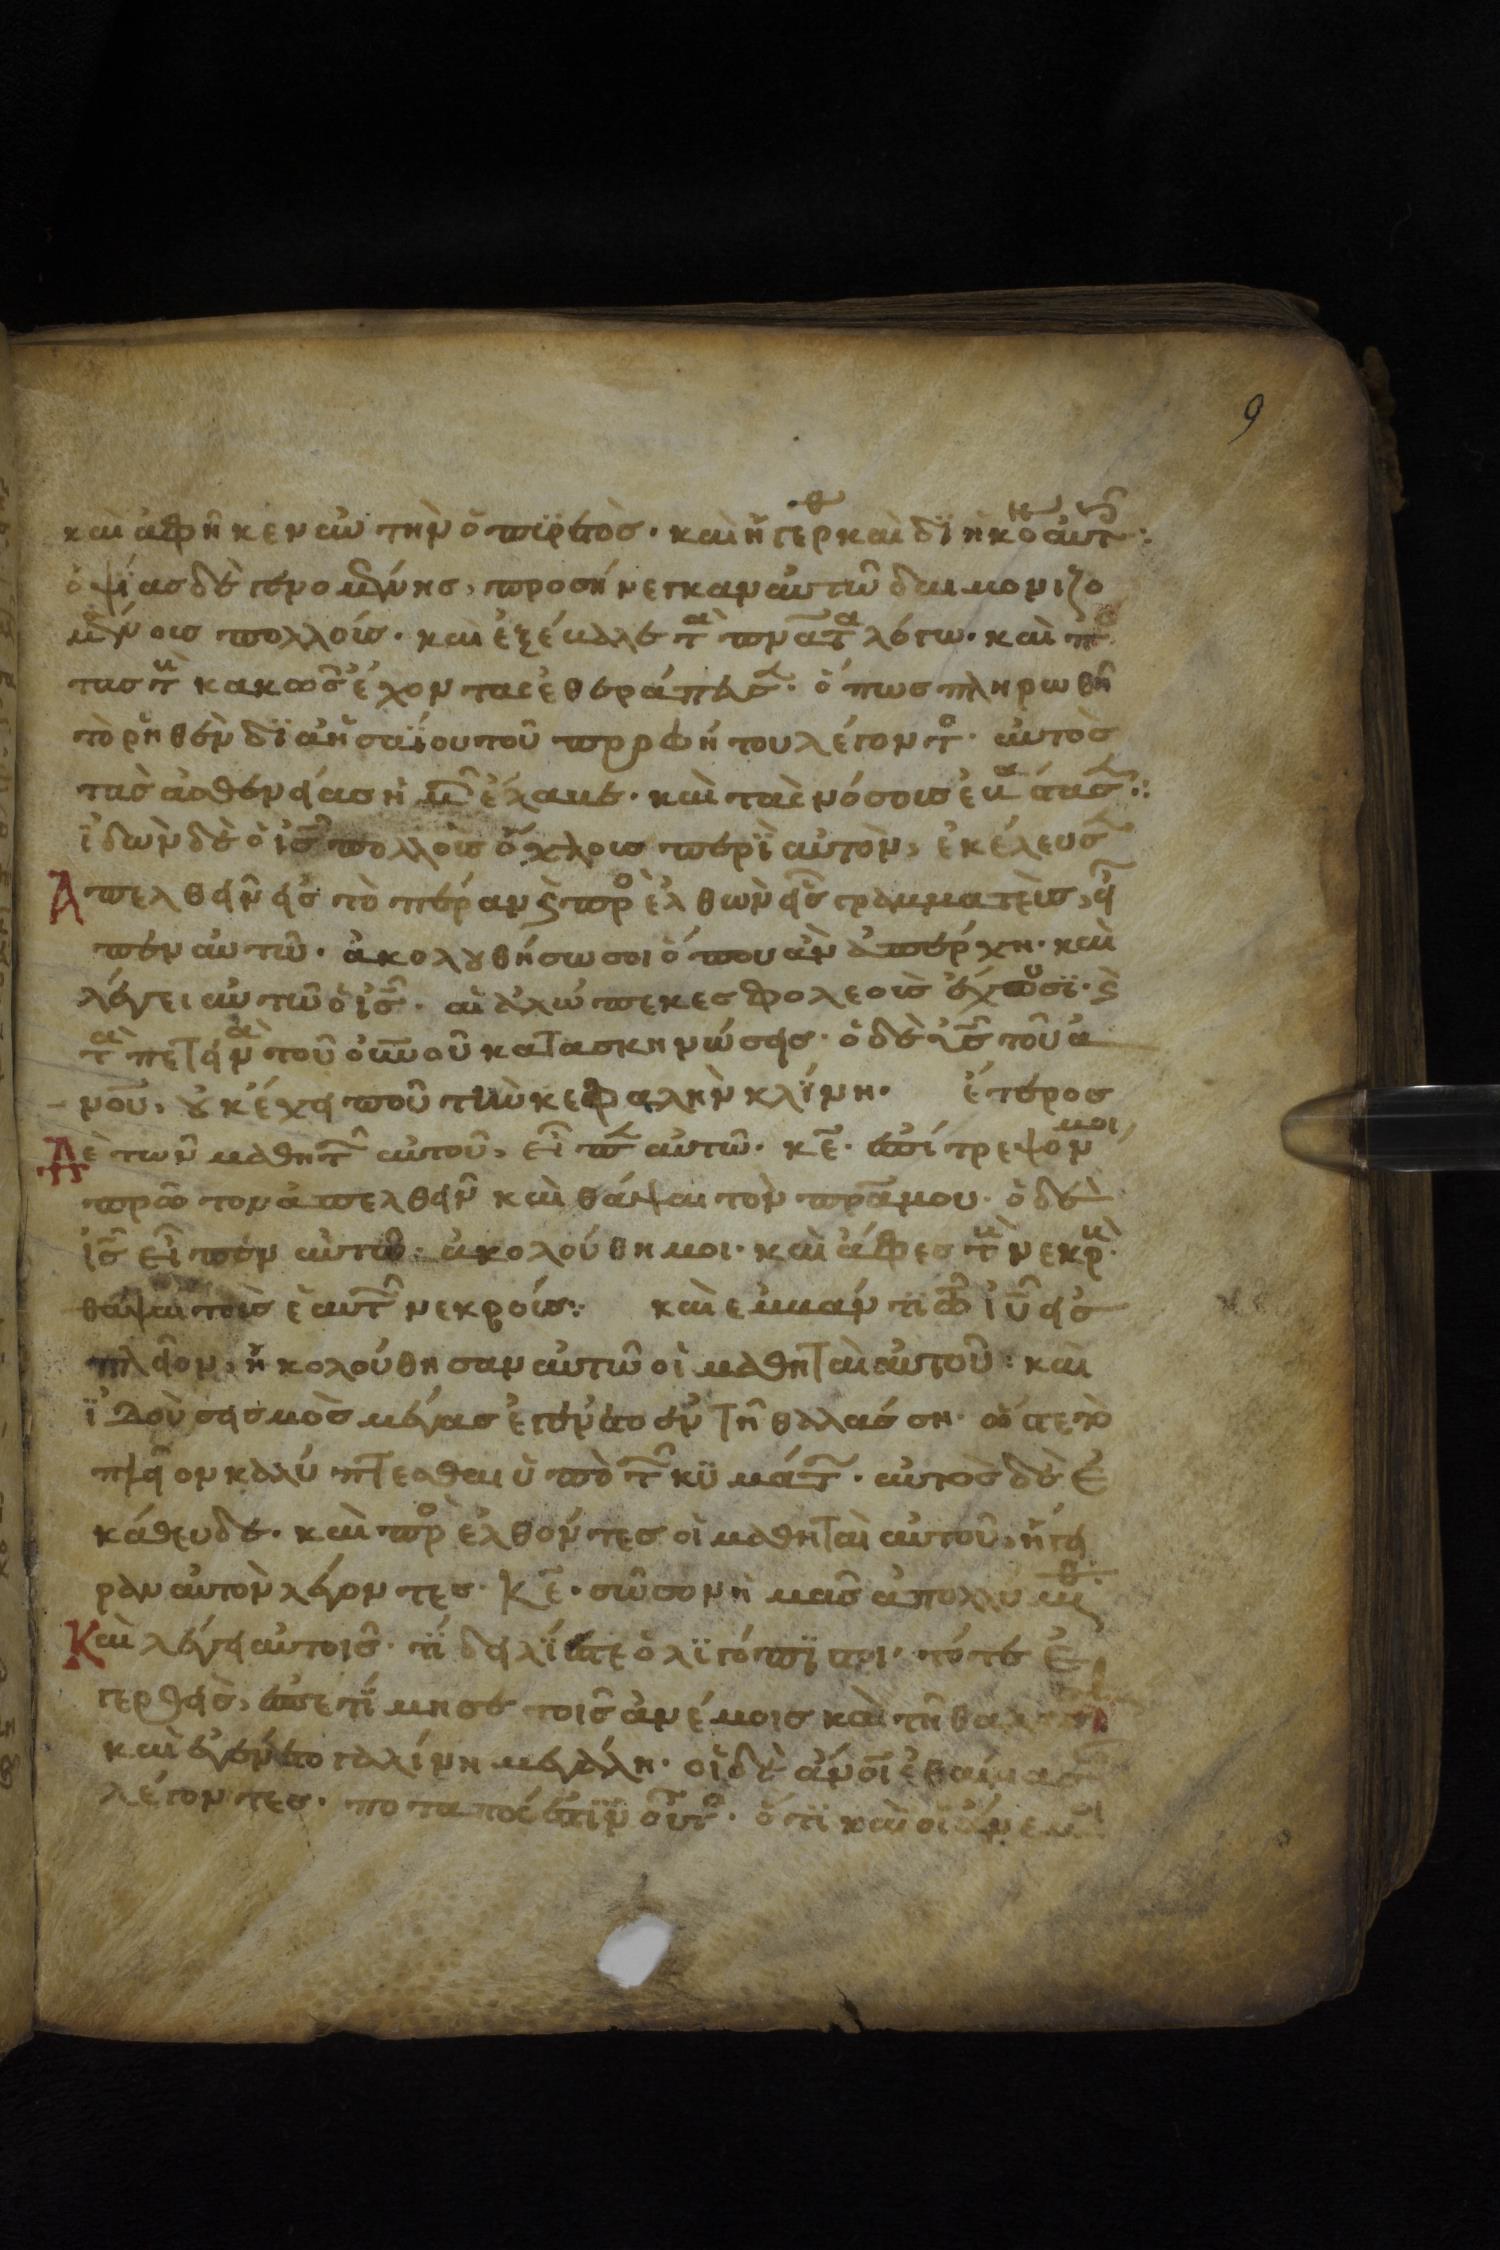 9
και ἀφῆκεν αὐτὴν ὁ πϊρετὸς· καὶ ἠγέρθ καὶ δϊηκόνει αὐτοῖς:
ὀψίας δὲ γενομένης, προσήνεγκαν αὐτῶ δαιμονιζο
μένοις πολλοίς· καὶ ἐξέβαλε τὰ πνατα λόγω· καὶ πᾶ
τας τοὺ κακῶς ἔχοντας ἐθεράπευσ· ὅπως πληρωθῆ
τὸ ρηθὲν δϊὰ ἠσαΐου τοῦ προφήτου λέγοντος· αὐτὸς
τὰς ἀσθενείας ἡμῶν ἔλαβε· καὶ τὰς νόσοις ἐβάστασ:
ἰδὼν δὲ ὁ ις πολλοὶς ὄχλοις περϊ αὐτὸν, ἐκέλευσ
ἀπελθεῖν εἰς τὸ πέραν ϛ προσελθὼν εἷς γραμματεὶς, εἶ
πεν αὐτῶ· ἀκολουθήσω σοι ὅπου ἂν ἀπέρχη· καὶ
λέγει αὐτῶ ὁ ις· αἱ ἀλώπεκες φολεοὶς ἔχουσϊ· ϛ
τὰ πετεινὰ τοῦ οὐνοῦ κατασκηνώσεις· ὁ δὲ υς τοῦ α
νου, οὐκ ἔχει ποῦ τὴν κεφαλὴν κλίνη· ἕτερος
δὲ τῶν μαθητῶν αὐτοῦ, εἶπεν αὐτῶ· κε· ἐπίτρεψόν μοι
πρῶτον ἀπελθεῖν καὶ θάψαι τὸν πρα μου· ὁ δὲ
ις εἶπεν αὐτῶ· ἀκολούθη μοι· καὶ ἄφες τοὺ νεκρού
θάψαι τοὶς ἑαυτῶν νεκροίς: καὶ ἐμβάντι τῶ ιυ εἰς
πλοῖον, ἠκολούθησαν αὐτῶ οἱ μαθηταὶ αὐτοῦ: καὶ
ϊδοὺ σεισμὸς μέγας ἐγένετο ἐν τῆ θαλάσση· ὥστε τὸ
πλοῖον καλύπτεσθαι ὑπὸ τῶν κϋμάτων· αὐτὸς δὲ ἐ
κάθευδε· καὶ προσελθόντες οἱ μαθηταὶ αὐτοῦ, ἤγει
ραν αὐτὸν λέγοντες· κε· σῶσον ἡμᾶς ἀπολλύμεθ·
Καὶ λέγει αὐτοῖς· τϊ δειλϊοί ἐστε ὀλϊγόπϊστοι· τότε ἐ
γερθεὶς, ἐπετίμησε τοῖς ἀνέμοις καὶ τῆ θαλάσση
καὶ ἐγένετο γαλίνη μεγάλη· οἱ δὲ ἀνοι ἐθαύμασ
λέγοντες· ποταπός ἐστϊν οὗτος· ὅτϊ καὶ οἱ ἄνεμοι